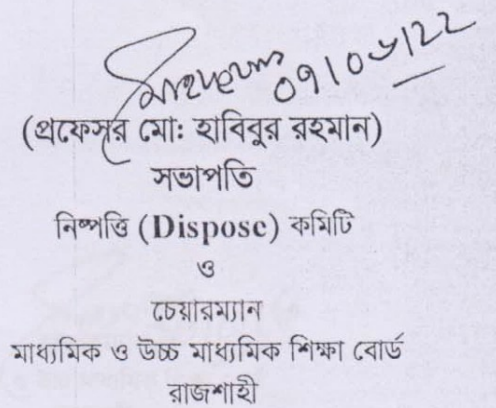 ০৭/০৬/২২
(প্রফেসর মো: হাবিবুর রহমান)
সভাপতি
নিষ্পত্তি (Dispose) কমিটি
ও
চেয়ারম্যান
মাধ্যমিক ও উচ্চ মাধ্যমিক শিক্ষা বোর্ড
রাজশাহী